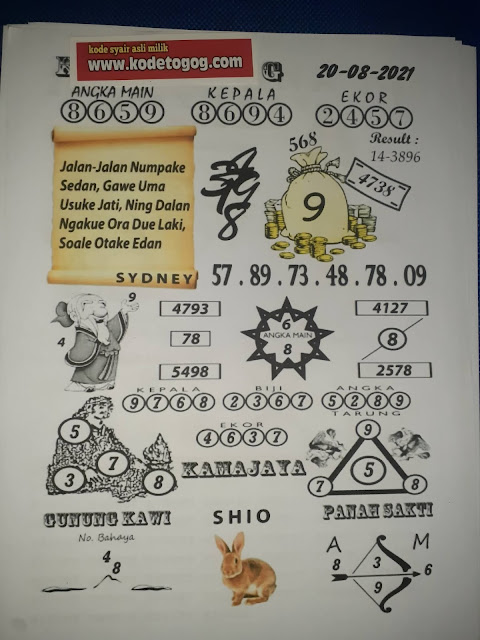 kode syair asli milik
www.kodetogog.com
G 20-08-2021
ANGKA MAIN KEPALA EKOR
8659 8694 2457
568
Result :
14-3896
4738
9
Jalan-Jalan Numpake
Sedan, Gawe Uma
Usuke Jati, Ning Dalan
Ngakue Ora Due Laki,
Soale Otake Edan
SYDNEY 57 . 89 . 73 . 48 . 78 . 09
9
4
4793
78
5498
6
ANGKA MAIN
8
4127
8
2578
KEPALA BIJI ANGKA
9768 2367 5289
TARUNG
EKOR
4637
5
3 7 8
KAMAJAYA
9
5
7 8
GUNUNG KAWI SHIO PANAH SAKTI
No. Bahaya
4
8
A M
8 3 6
9